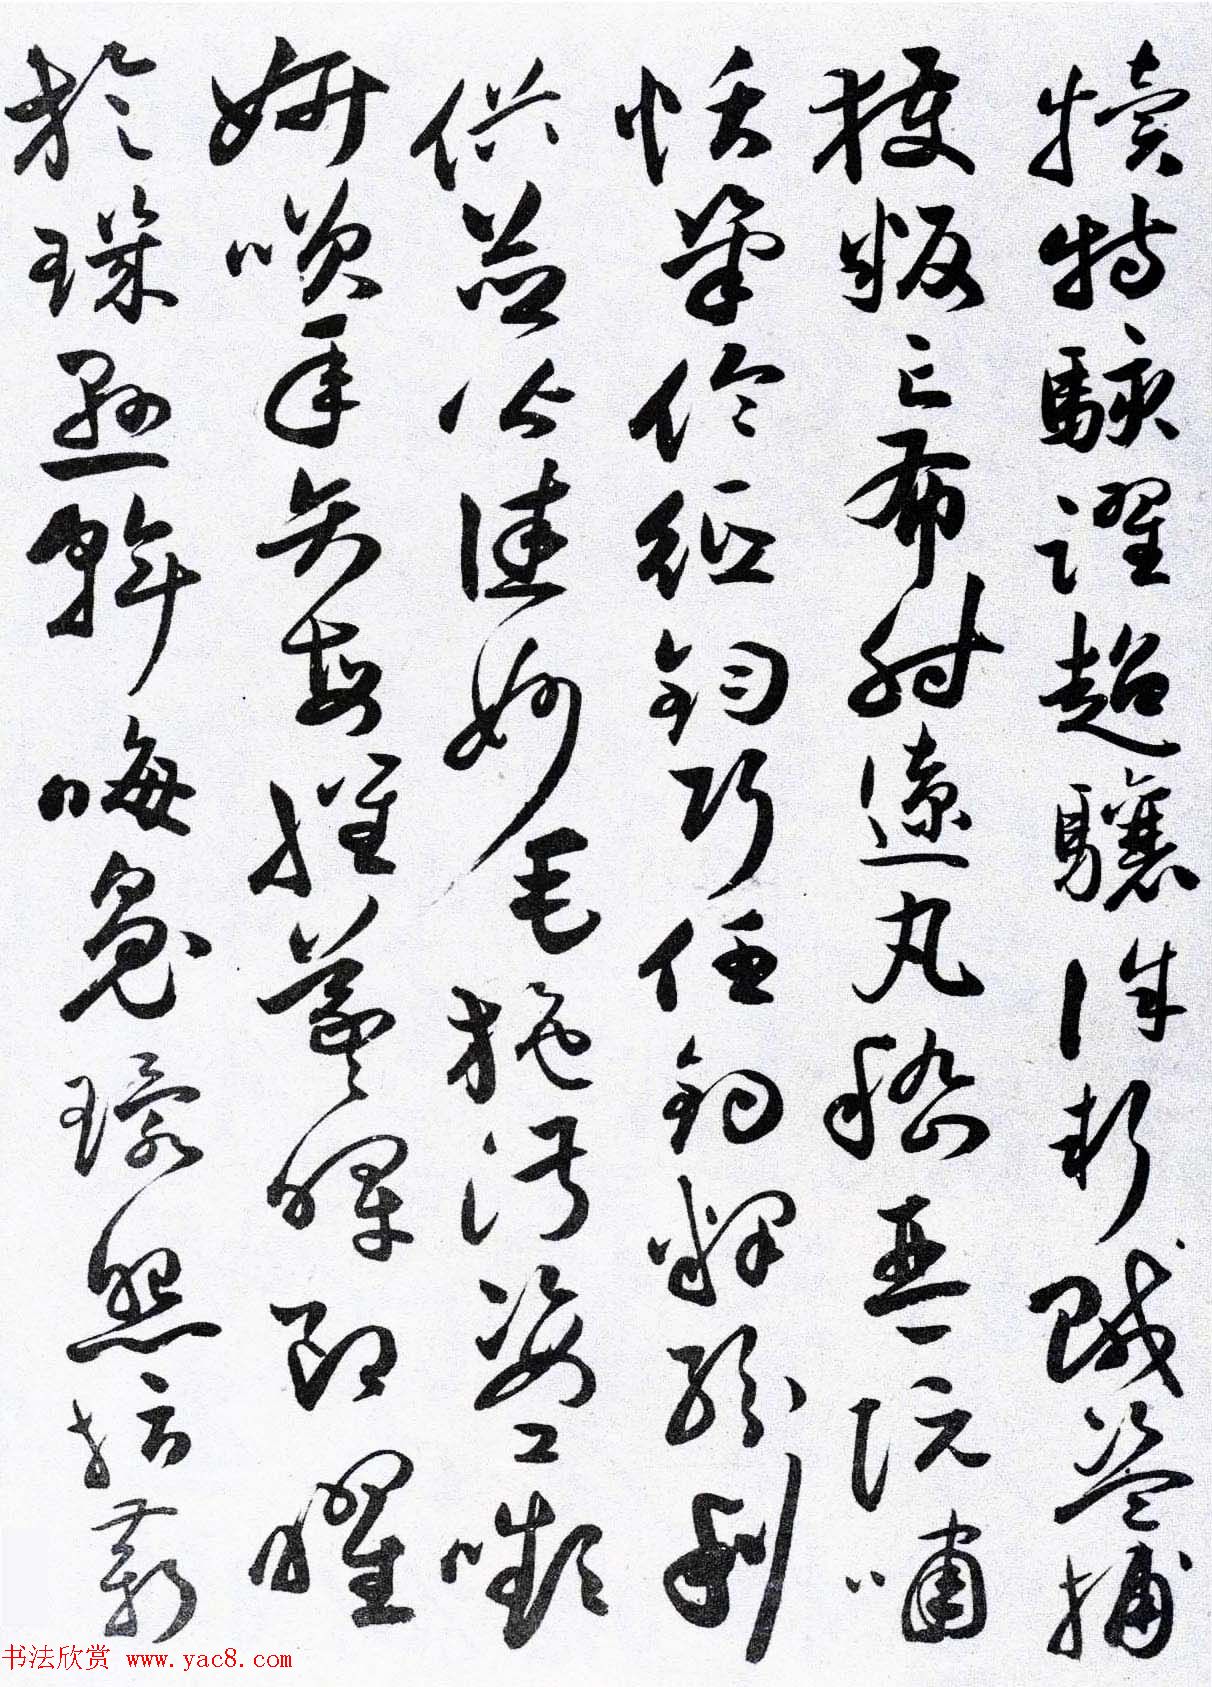 犢特駭躍超驤誅斬賊盜捕
獲叛亡布射遼丸嵇琴阮嘯
恬筆倫紙鈞巧任釣釋紛利
俗並皆佳妙毛施淑姿工嚬
妍笑年矢每催羲暉朗曜
旋璣懸斡晦魄環照指薪
书法欣赏 www.yac8.com